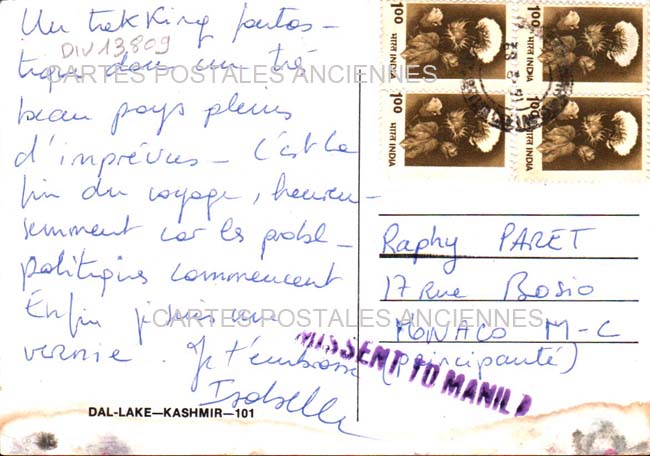 Un trekking fantas-
DIV 13,809
tique dans un très
CARTES POSTALES ANCIENNES
beau pays pleins
d'imprévus - C'est la
fin du voyage, heureu-
semment car les probl-
politiques commencent
Enfin j'suis une
CARTES POSTALES ANCIENNES
vernie. Je t'embrasse
Isabelle
DAL-LAKE—KASHMIR—101
100 भारत INDIA
100 भारत INDIA
100 भारत INDIA
100 भारत INDIA
Raphy PARET
17 Rue Bosio
MONACO M-C
(principauté)
MISSENT TO MANILA